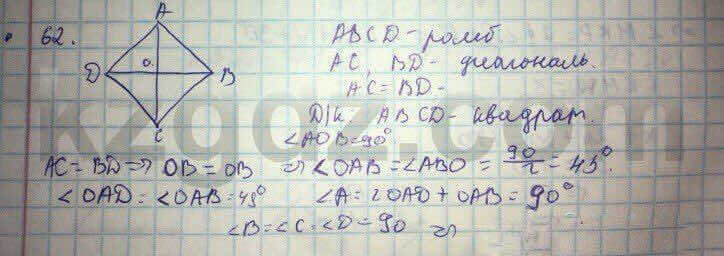 62.
A
D
O
B
C
ABCD - ромб.
AC, BD - диагональ.
AC = BD -
D/к: ABCD - квадрат.
<AOB = 90°
AC = BD => OB = OB => <OAB = <ABO = 90/2 = 45°.
<OAD = <OAB = 45° <A = <OAD + OAB = 90°
<B = <C = <D = 90 =>
kzgoz.com